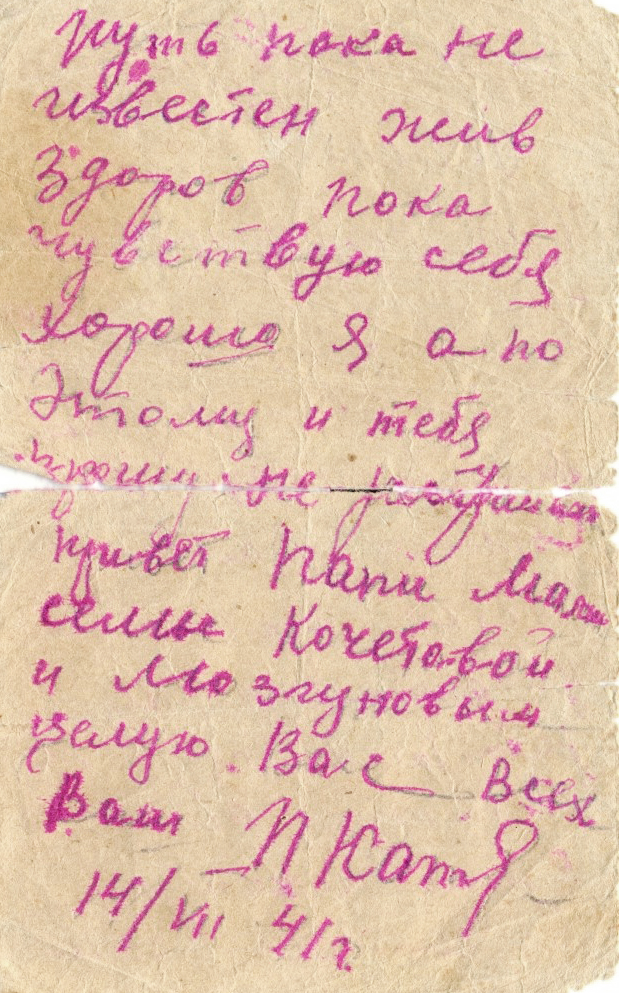 путь пока не
известен жив
здоров пока
чувствую себя
хорошо я а по
этому и тебя
прошу не
привет папи мами
семьи Кочетовой
и Мозгуновым
целую. Вас всех
Ваш П Кат
14/VII 41 г.